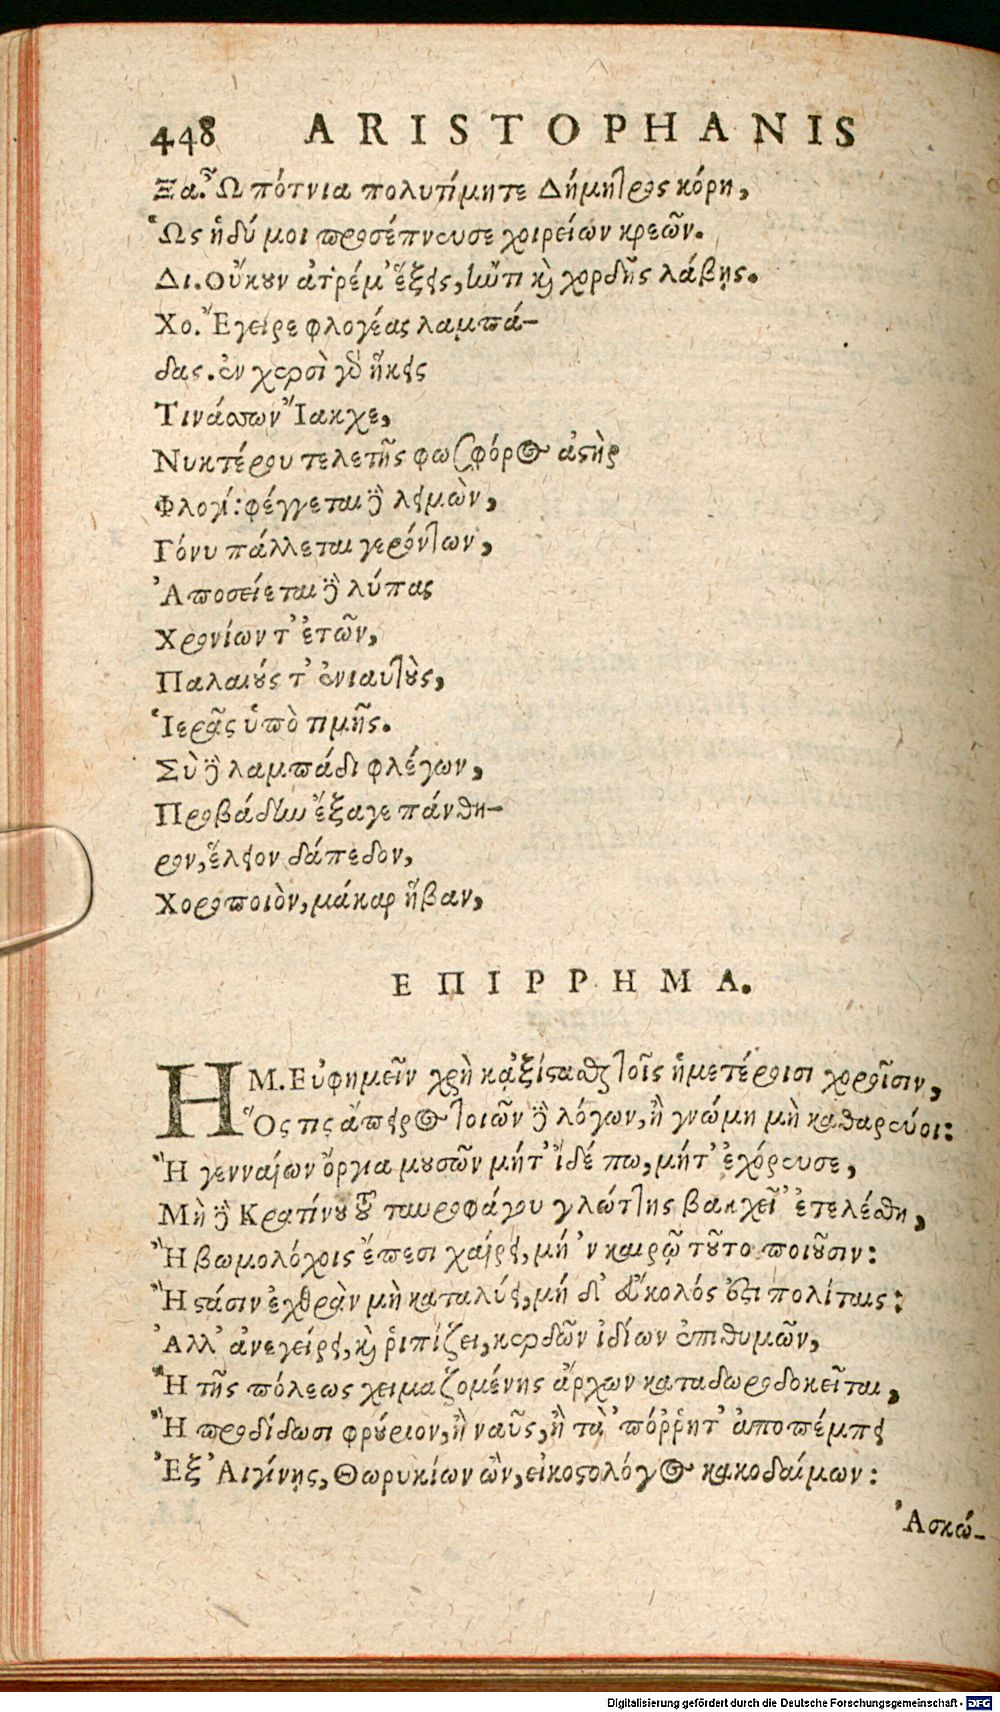 448 ARISTOPHANIS
Ξα. Ὦ πότνια πολυτίμητε Δήμητρος κόρη,
Ὡς ἡδύ μοι προσέπνευσε χοιρείων κρεῶν.
Δι. Οὔκουν ἀτρέμ' ἕξεις, ἤν τι καὶ χορδῆς λάβῃς.
Χο. Ἔγειρε φλογέας λαμπά-
δας. ἐν χερσὶ γὰρ ἥκεις
Τινάσσων Ἴακχε,
Νυκτέρου τελετῆς φωσφόρος ἀστὴρ
Φλογί: φέγγεται δὲ λειμὼν,
Γόνυ πάλλεται γερόντων,
Ἀποσείεται δὲ λύπας
Χρονίων τ' ἐτῶν,
Παλαιούς τ' ἐνιαυτοὺς,
Ἱερᾶς ὑπὸ τιμῆς.
Σὺ δὲ λαμπάδι φλέγων,
Προβάδην ἔξαγε πάνθη-
ρον, ἕλειον δάπεδον,
Χοροποιὸν, μάκαρ ἥβαν,
ΕΠΙΡΡΗΜΑ.
ΗΜ. Εὐφημεῖν χρὴ κἀξίστασθαι τοῖς ἡμετέροισι χοροῖσιν,
Ὅς τις ἄπειρος τοιῶν δὲ λόγων, ἢ γνώμῃ μὴ καθαρεύοι:
Ἢ γενναίων ὄργια μουσῶν μήτ' ἴδέ πω, μήτ' ἐχόρευσε,
Μὴ δὲ Κρατίνου τοῦ ταυροφάγου γλώττης βακχεῖ' ἐτελέσθη,
Ἢ βωμολόχοις ἔπεσι χαίρει, μή 'ν καιρῷ τοῦτο ποιοῦσιν:
Ἢ στάσιν ἐχθρὰν μὴ καταλύει, μή δ' εὔκολός ἐστι πολίταις:
Ἀλλ' ἀνεγείρει, καὶ ῥιπίζει, κερδῶν ἰδίων ἐπιθυμῶν,
Ἢ τῆς πόλεως χειμαζομένης ἄρχων καταδωροδοκεῖται,
Ἢ προδίδωσι φρούριον, ἢ ναῦς, ἢ τὰ 'πόῤῥητ' ἀποπέμπει
Ἐξ Αἰγίνης, Θωρυκίων ὢν, εἰκοστολόγος κακοδαίμων:
Ἀσκώ-
Digitalisierung gefördert durch die Deutsche Forschungsgemeinschaft - DFG